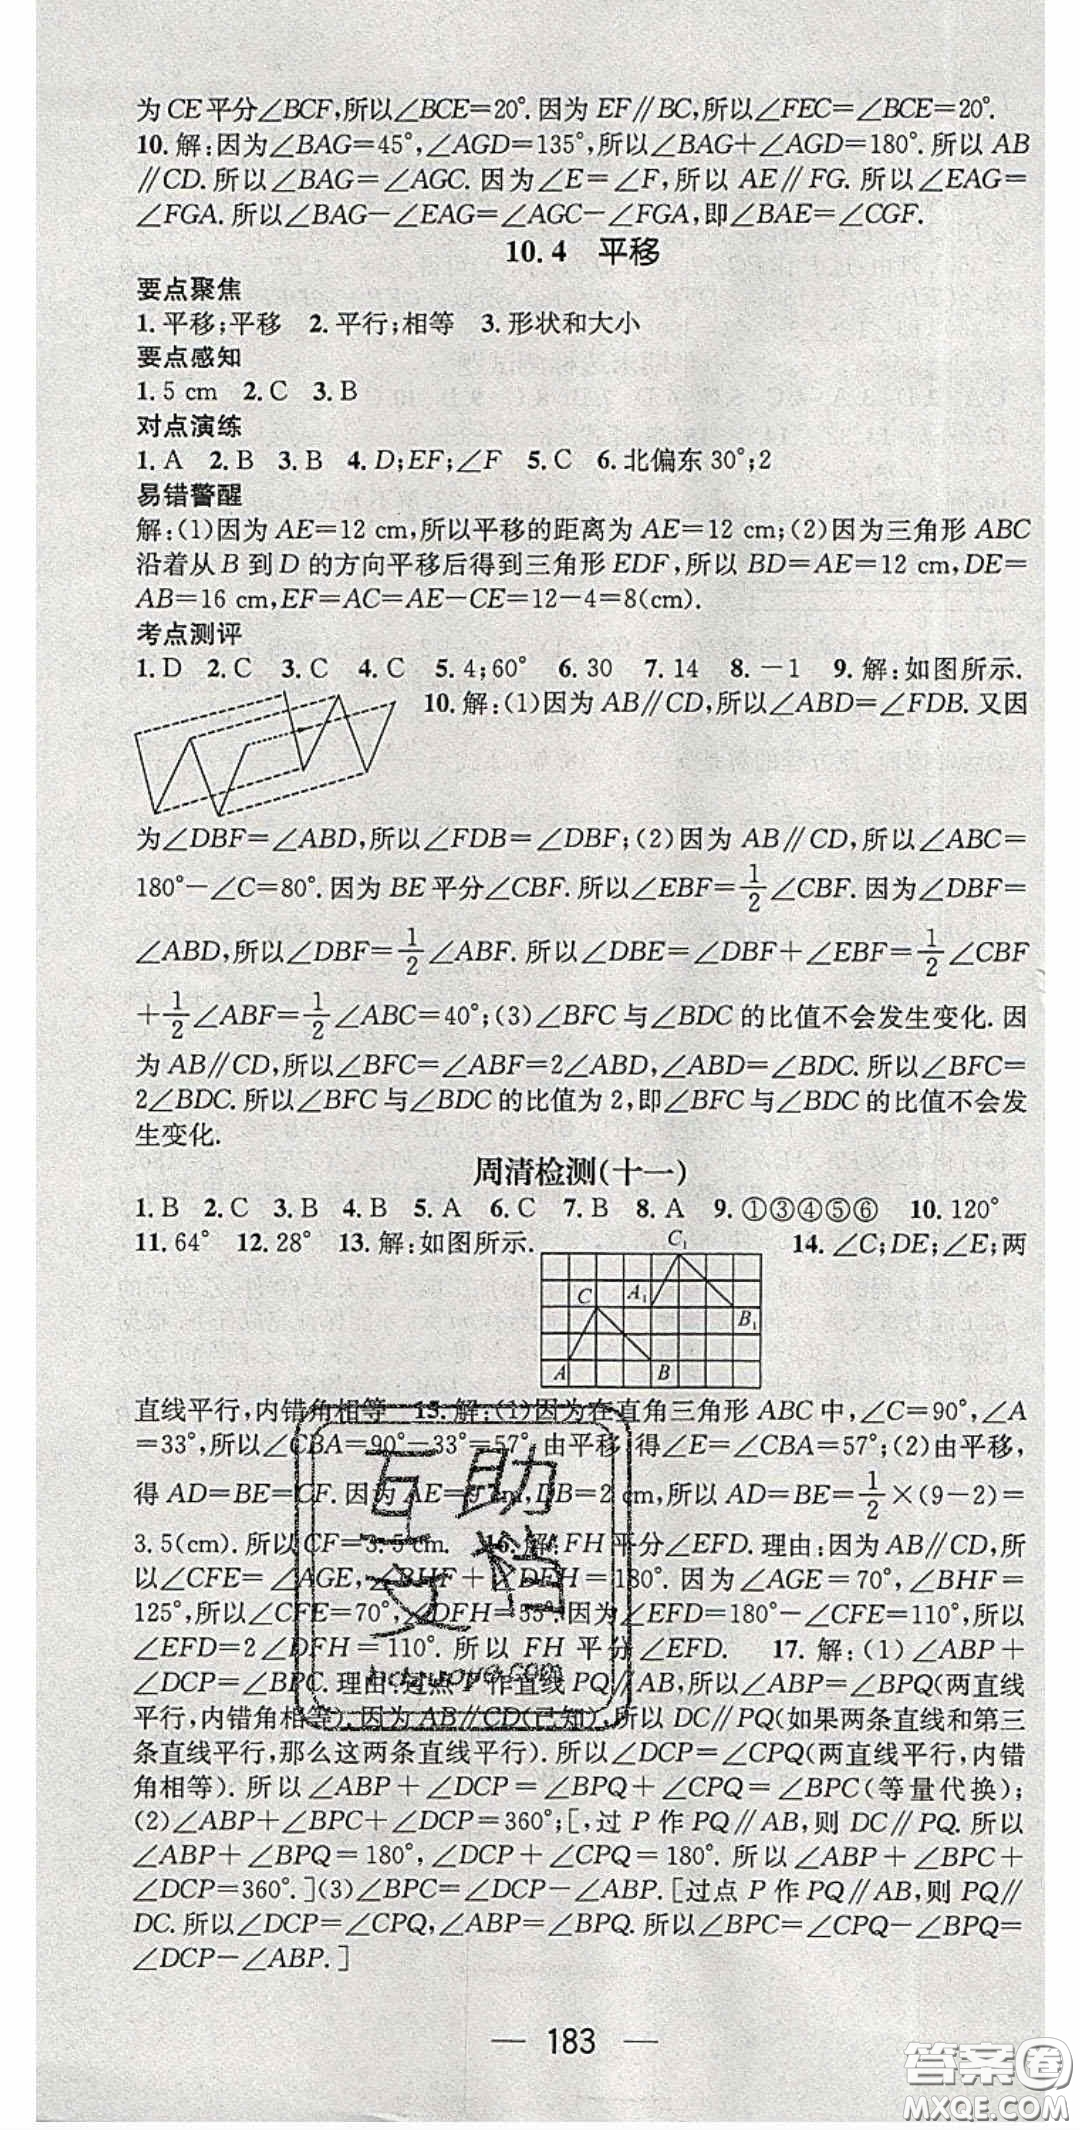 为CE平分∠BCF,所以∠BCE=20°.因为EF∥BC,所以∠FEC=∠BCE=20°.
10.解:因为∠BAG=45°,∠AGD=135°,所以∠BAG+∠AGD=180°.所以AB
∥CD.所以∠BAG=∠AGC.因为∠E=∠F,所以AE∥FG.所以∠EAG=
∠FGA.所以∠BAG-∠EAG=∠AGC-∠FGA,即∠BAE=∠CGF.
10.4 平移
要点聚焦
1.平移;平移 2.平行;相等 3.形状和大小
要点感知
1.5 cm 2.C 3.B
对点演练
1.A 2.B 3.B 4.D;EF;∠F 5.C 6.北偏东30°;2
易错警醒
解:(1)因为AE=12 cm,所以平移的距离为AE=12 cm;(2)因为三角形ABC
沿着从B到D的方向平移后得到三角形EDF,所以BD=AE=12 cm,DE=
AB=16 cm,EF=AC=AE-CE=12-4=8(cm).
考点测评
1.D 2.C 3.C 4.C 5.4;60° 6.30 7.14 8.-1 9.解:如图所示.
10.解:(1)因为AB∥CD,所以∠ABD=∠FDB.又因
为∠DBF=∠ABD,所以∠FDB=∠DBF;(2)因为AB∥CD,所以∠ABC=
180°-∠C=80°.因为BE平分∠CBF.所以∠EBF=1/2∠CBF.因为∠DBF=
∠ABD,所以∠DBF=1/2∠ABF.所以∠DBE=∠DBF+∠EBF=1/2∠CBF
+1/2∠ABF=1/2∠ABC=40°;(3)∠BFC与∠BDC的比值不会发生变化.因
为AB∥CD,所以∠BFC=∠ABF=2∠ABD,∠ABD=∠BDC.所以∠BFC=
2∠BDC.所以∠BFC与∠BDC的比值为2,即∠BFC与∠BDC的比值不会发
生变化.
周清检测(十一)
1.B 2.C 3.B 4.B 5.A 6.C 7.B 8.A 9.①③④⑤⑥ 10.120°
11.64° 12.28° 13.解:如图所示. 14.∠C;DE;∠E;两
C₁
C A₁ B₁
A B
直线平行,内错角相等 15.解:(1)因为在直角三角形ABC中,∠C=90°,∠A
=33°,所以∠CBA=90°-33°=57°.由平移,得∠E=∠CBA=57°;(2)由平移,
得AD=BE=CF.因为AE=9 cm,DB=2 cm,所以AD=BE=1/2×(9-2)=
3.5(cm).所以CF=3.5 cm. 16.解:FH平分∠EFD.理由:因为AB∥CD,所
以∠CFE=∠AGE,∠BHF+∠DFH=180°.因为∠AGE=70°,∠BHF=
125°,所以∠CFE=70°,∠DFH=55°.因为∠EFD=180°-∠CFE=110°,所以
∠EFD=2∠DFH=110°.所以FH平分∠EFD. 17.解:(1)∠ABP+
∠DCP=∠BPC.理由:过点P作直线PQ∥AB,所以∠ABP=∠BPQ(两直线
平行,内错角相等).因为AB∥CD(已知),所以DC∥PQ(如果两条直线和第三
条直线平行,那么这两条直线平行).所以∠DCP=∠CPQ(两直线平行,内错
角相等).所以∠ABP+∠DCP=∠BPQ+∠CPQ=∠BPC(等量代换);
(2)∠ABP+∠BPC+∠DCP=360°;[,过P作PQ∥AB,则DC∥PQ.所以
∠ABP+∠BPQ=180°,∠DCP+∠CPQ=180°.所以∠ABP+∠BPC+
∠DCP=360°.](3)∠BPC=∠DCP-∠ABP.[过点P作PQ∥AB,则PQ∥
DC.所以∠DCP=∠CPQ,∠ABP=∠BPQ.所以∠BPC=∠CPQ-∠BPQ=
∠DCP-∠ABP.]
互助
文档
— 183 —
答案圈
MXQE.COM